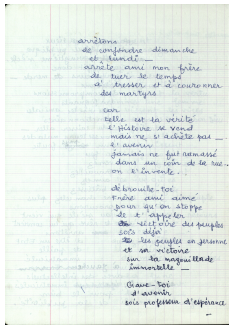 arrêtons
de confondre dimanche
et lundi —
arrête ami mon frère
de tuer le temps
à tresser et à couronner
des martyrs
car
telle est la vérité
l'Histoire se vend
mais ne s'achète pas —
l'avenir
jamais ne fut ramassé
dans un coin de la rue —
on l'invente.
débrouille-toi
frère ami aimé
pour qu'on stoppe
de t'appeler
victoire des peuples
sois déjà
les peuples en personne
et sa victoire
sur la magouillade
immortelle —
Grave-toi
d'avenir
sois professeur d'espérance